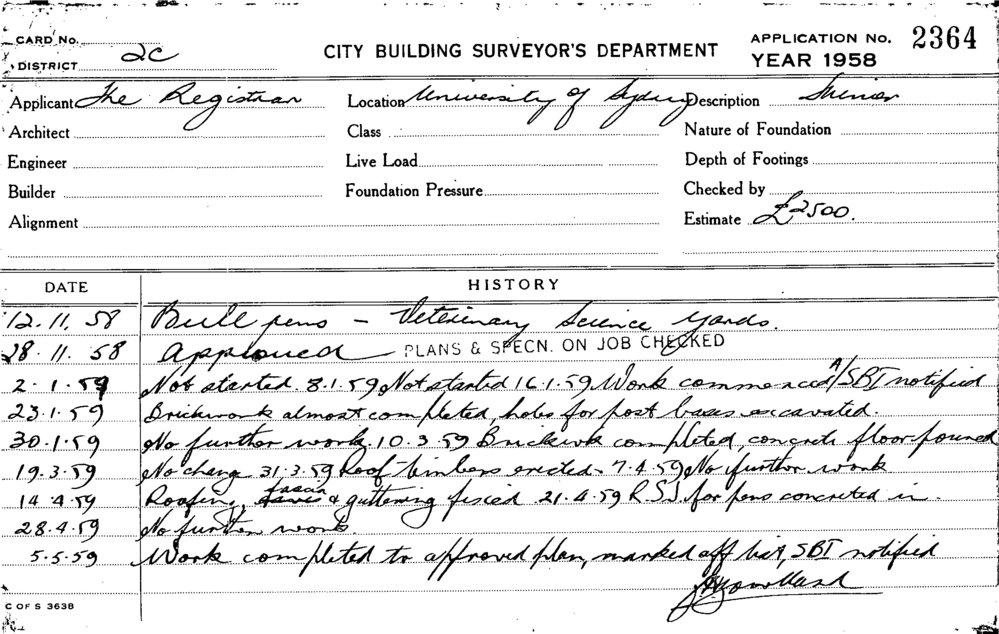 CARD No.
DISTRICT 2C
CITY BUILDING SURVEYOR'S DEPARTMENT
APPLICATION No. 2364
YEAR 1958
Applicant The Registrar Location University of Sydney Description Minor
Architect Class Nature of Foundation
Engineer Live Load Depth of Footings
Builder Foundation Pressure Checked by
Alignment Estimate £2500.
DATE HISTORY
12.11.58 Bull pens - Veterinary Science Yards.
28.11.58 Approved PLANS & SPECN. ON JOB CHECKED
2.1.59 Not started 8.1.59 Not started 16.1.59 Work commenced A/SBI notified
23.1.59 Brickwork almost completed, holes for post bases excavated.
30.1.59 No further work. 10.3.59 Brickwk completed, concrete floor poured
19.3.59 No change 31.3.59 Roof timbers erected - 7.4.59 No further work
14.4.59 Roofing, fascia & guttering fixed 21.4.59 R.S.J. for pens concreted in.
28.4.59 No further work
5.5.59 Work completed to approved plan, marked off list, SBI notified
C OF S 3638